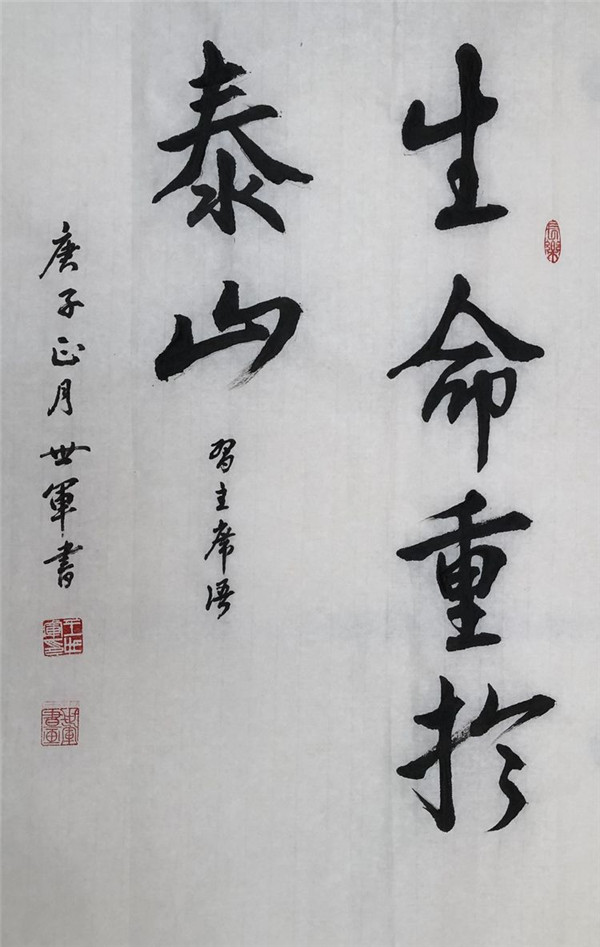 生命重於
泰山
習主席語
庚子正月世軍書
長樂